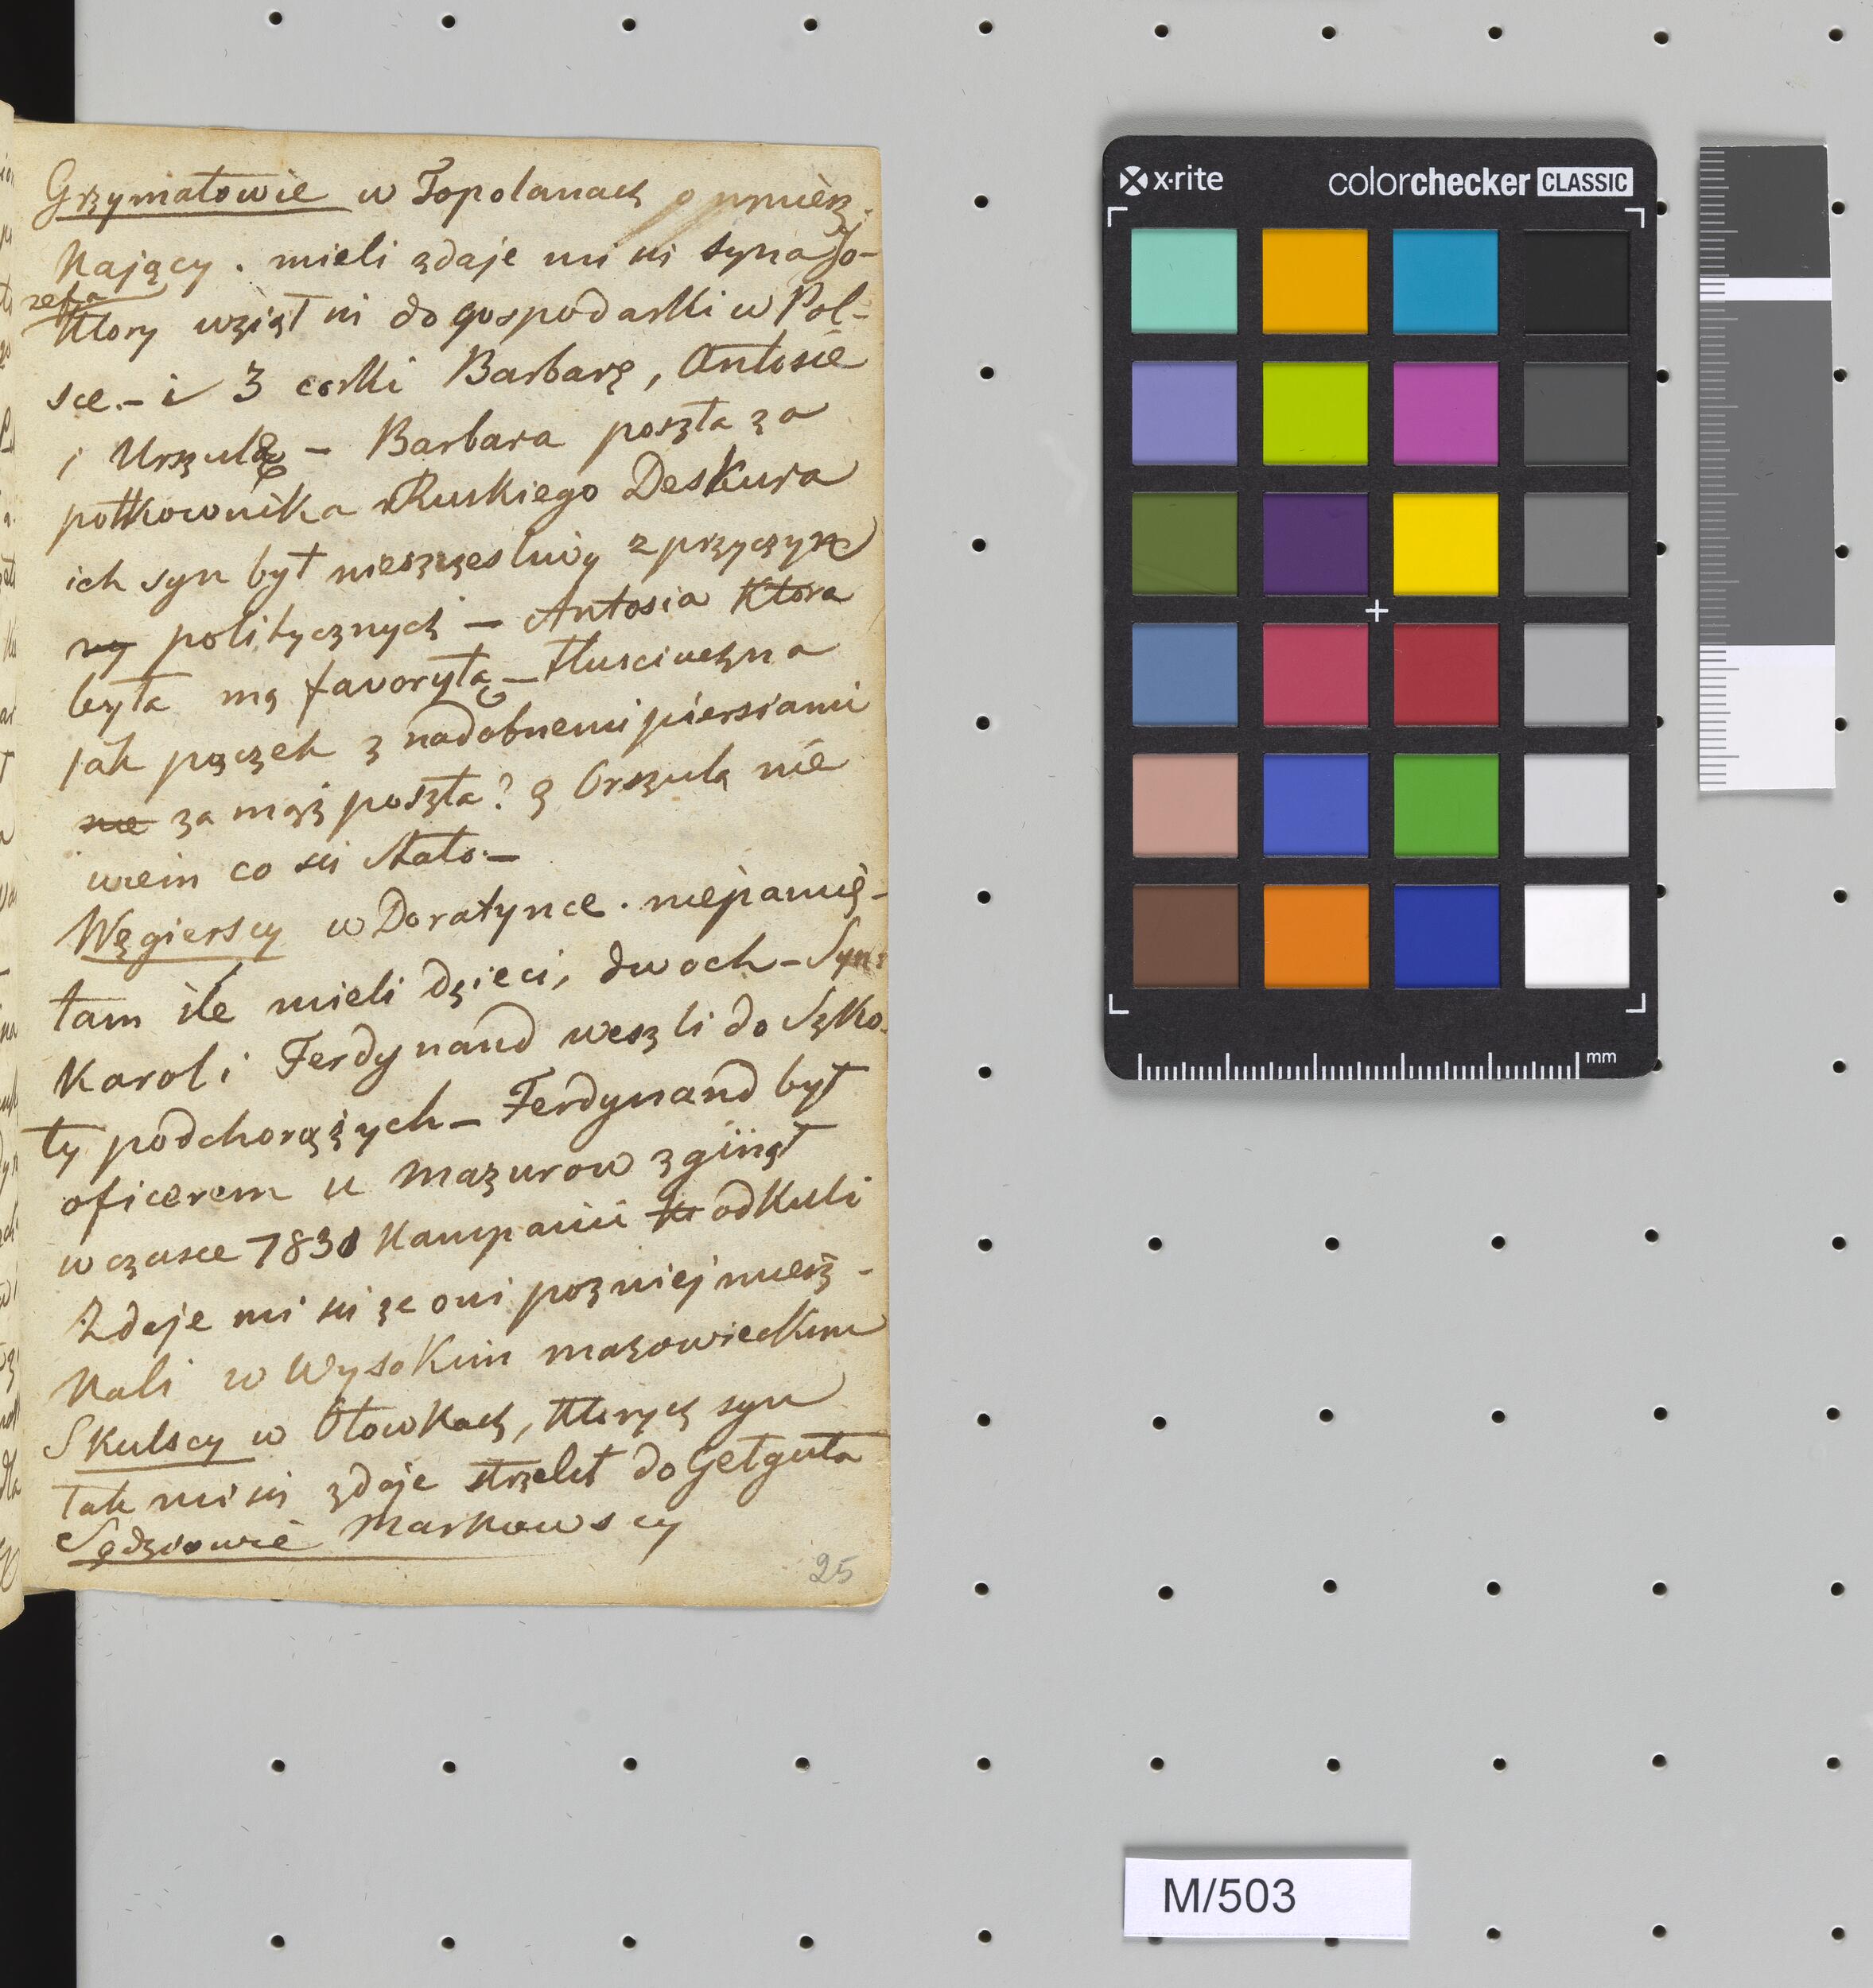 Grzymałowie w Topolanach
kający. mieli zdaje mi si syna Jo-
zefa
ktory wziął si do gospodarki w Pol-
sce. - i 3 corki Barbarę, Antosię
i Urszulę - Barbara poszła za
połkownika Ruskiego Deskura
ich syn był nieszczesliwy z przyczyn
ny politycznych - Antosia ktora
była mą favorytą - tłusciuczna
jak pączek z nadobnemi piersiami
nie za mąż poszła? Orszula nie
wiem co si stało. -
Węgierscy w Doratynce. niepamię-
tam ile mieli dzieci, dwoch - Syn
Karol i Ferdynand weszli do Szko-
ły podchorążych - Ferdynand był
oficerem u Mazurow zginął
w czasie 1831 Kampanii od Kuli
Zdaje mi si ze oni pozniej miesz-
kali w Wysokim mazowieckim
Skulscy w Ołowkach, ktorych syn
Tak mi si zdaje strzelił do Gełguta
Sędziowie Markowscy
25
x-rite
colorchecker CLASSIC
mm
M/503